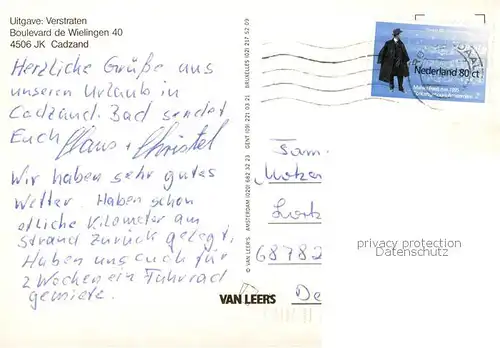 Uitgave: Verstraten
Boulevard de Wielingen 40
4506 JK Cadzand
Herzliche Grüße aus
unserem Urlaub in
Cadzand. Bad sendet
Euch Hans + Christel
Wir haben sehr gutes
Wetter. Haben schon
etliche Kilometer am
Strand zurück gelegt.
Haben uns auch für
2 Wochen ein Fahrrad
gemietet.
© VAN LEER'S AMSTERDAM (020) 682 32 23 GENT (09) 221 03 21 BRUXELLES (02) 217 52 09
VAN LEERS
Nederland 80 ct
Fam.
68782
De
privacy protection
Datenschutz